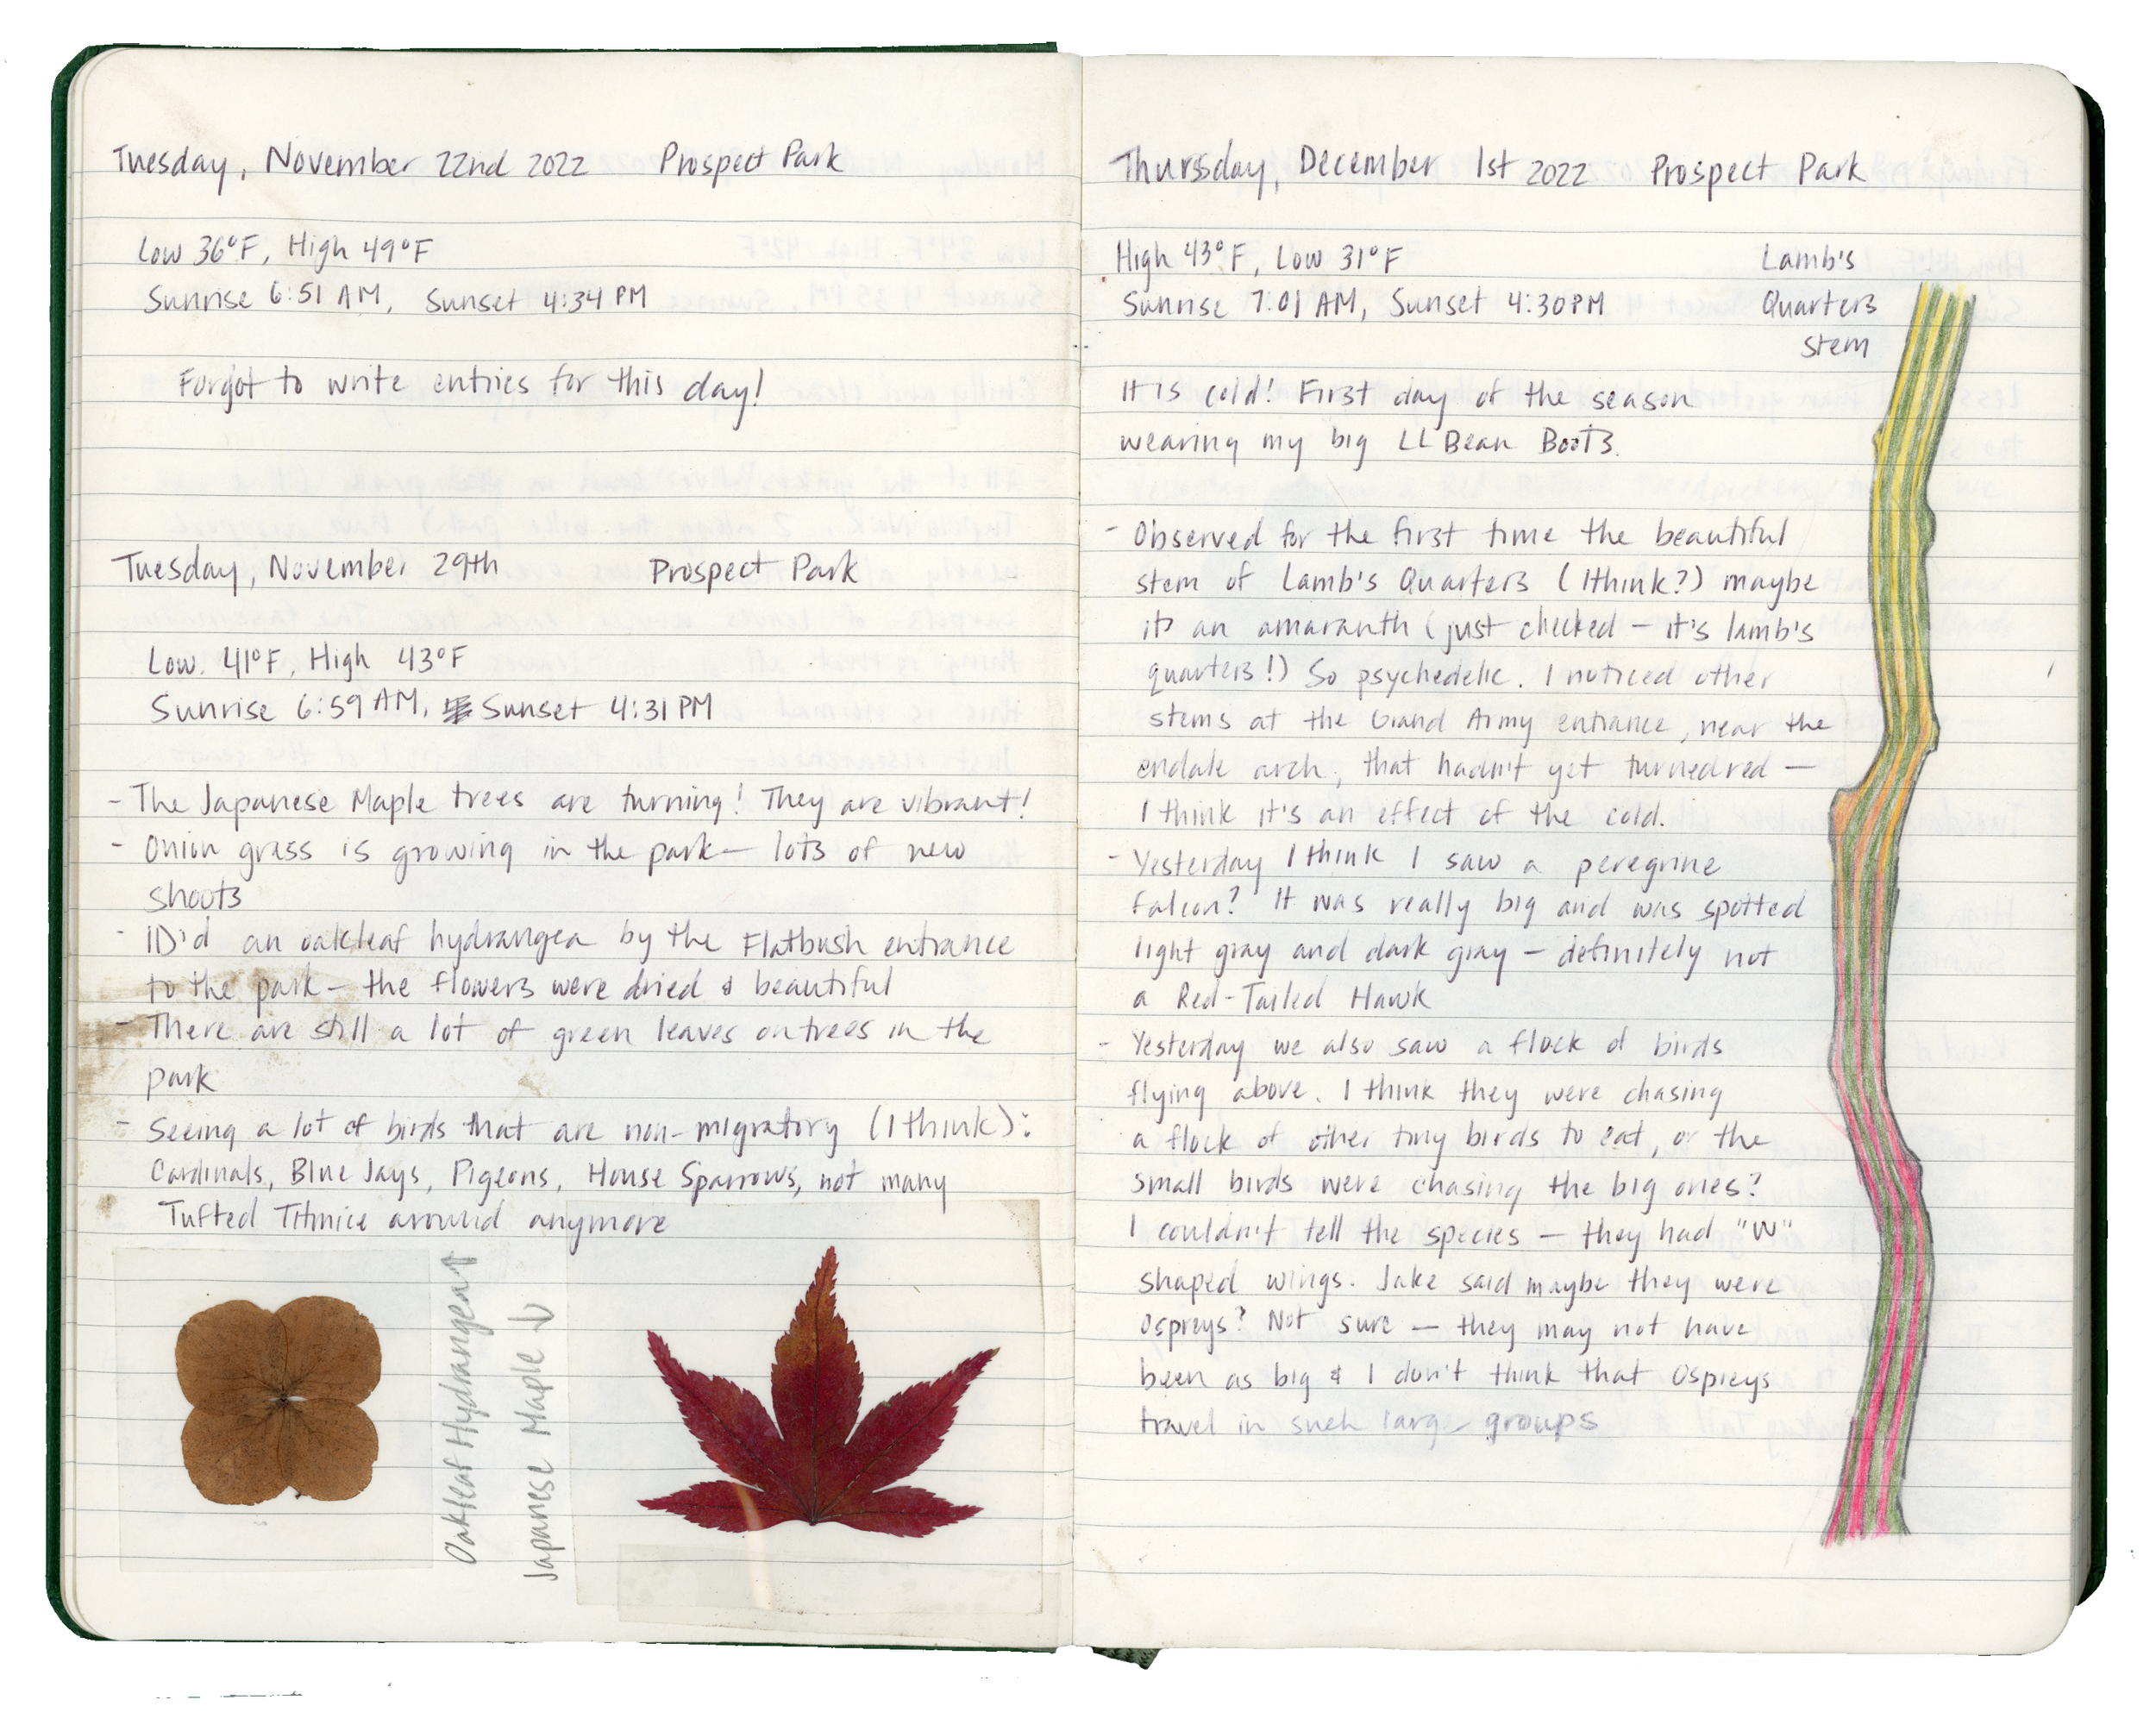 Tuesday, November 22nd 2022 Prospect Park
Low 36°F, High 49°F
Sunrise 6:51 AM, Sunset 4:34 PM
Forgot to write entries for this day!
Tuesday, November 29th Prospect Park
Low. 41°F, High 43°F
Sunrise 6:59 AM, Sunset 4:31 PM
- The Japanese Maple trees are turning! They are vibrant!
- Onion grass is growing in the park — lots of new
shoots
- ID'd an oakleaf hydrangea by the Flatbush entrance
to the park — the flowers were dried & beautiful
- There are still a lot of green leaves on trees in the
park
- Seeing a lot of birds that are non-migratory (I think):
Cardinals, Blue Jays, Pigeons, House Sparrows, not many
Tufted Titmice around anymore
Oakleaf Hydrangea ↑
Japanese Maple ↓
Thursday, December 1st 2022 Prospect Park
High 43°F, Low 31°F
Sunrise 7:01 AM, Sunset 4:30 PM
Lamb's
Quarters
stem
It is cold! First day of the season
wearing my big LL Bean Boots.
- Observed for the first time the beautiful
stem of Lamb's Quarters (I think?) maybe
its an amaranth (just checked — it's lamb's
quarters!) So psychedelic. I noticed other
stems at the Grand Army entrance, near the
endale arch, that hadn't yet turned red —
I think it's an effect of the cold.
- Yesterday I think I saw a peregrine
falcon? It was really big and was spotted
light gray and dark gray — definitely not
a Red-Tailed Hawk
- Yesterday we also saw a flock of birds
flying above. I think they were chasing
a flock of other tiny birds to eat, or the
small birds were chasing the big ones?
I couldn't tell the species — they had "W"
shaped wings. Jake said maybe they were
Ospreys? Not sure — they may not have
been as big & I don't think that Ospreys
travel in such large groups